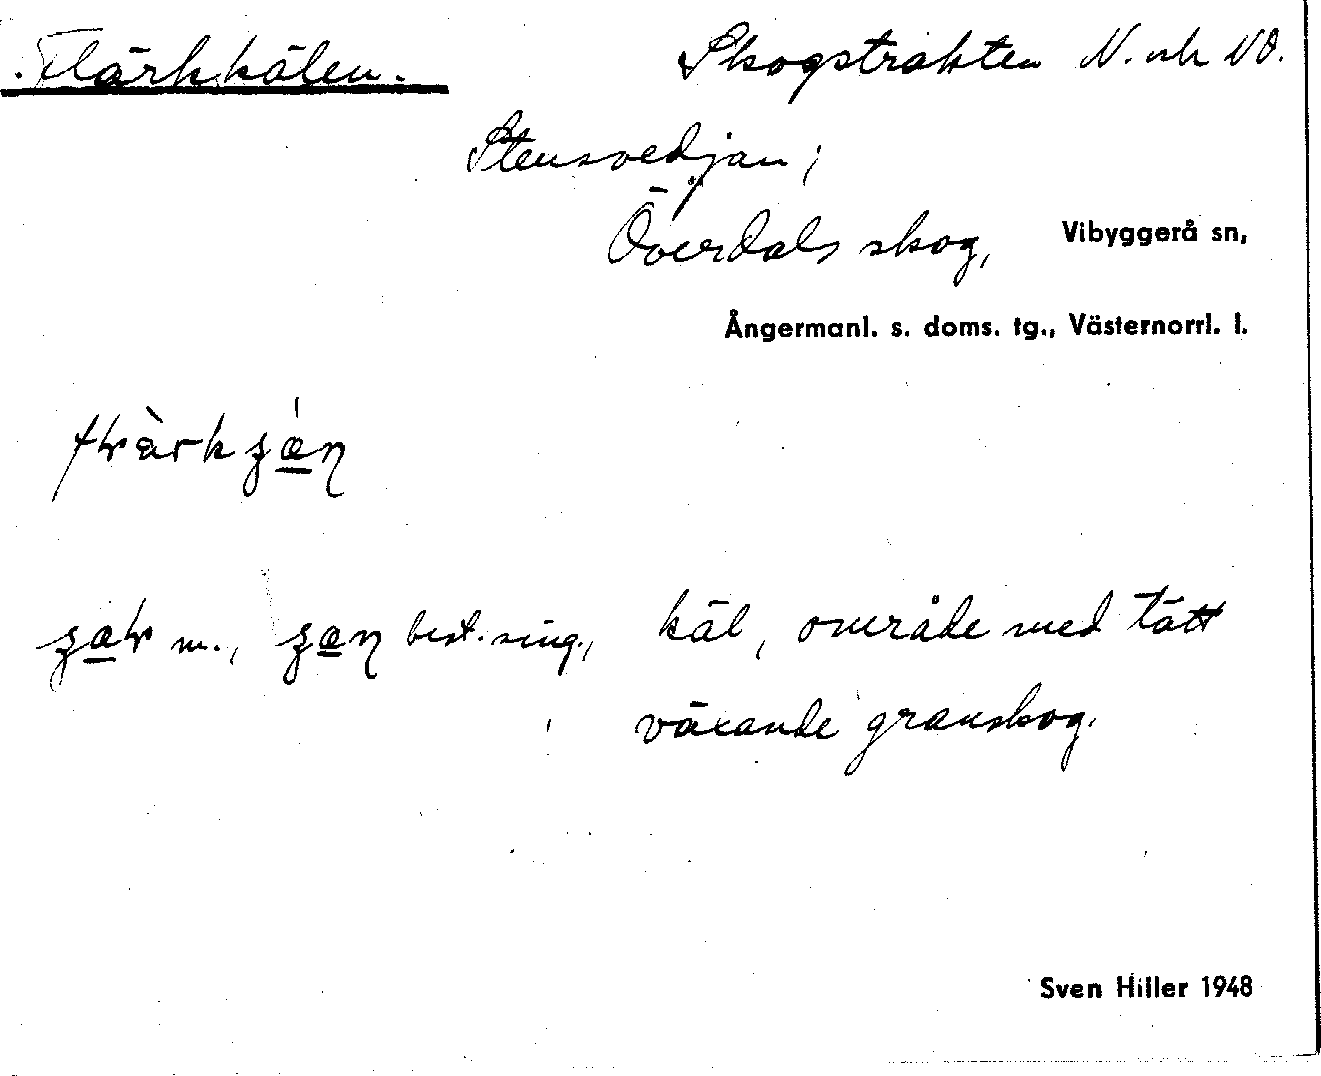 Flärkkälen. Skogstrakten N. och NO.
Stensvedjan;
Överdals skog, Vibyggerå sn,
Ångermanl. s. doms. tg., Västernorrl. l.
m., best. sing., käl, område med tätt
växande granskog.
Sven Hiller 1948